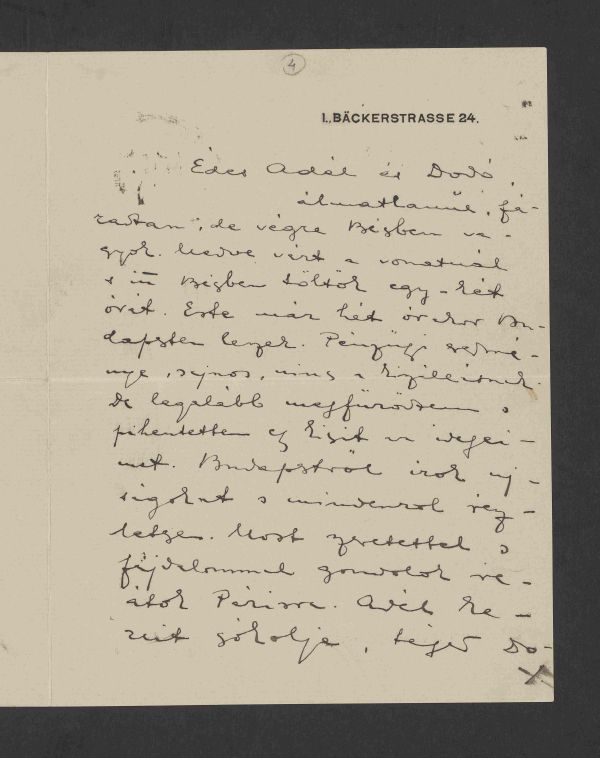 4
I., BÄCKERSTRASSE 24.
Édes Adél és Dodó,
álmatlanúl, fá-
radtan, de végre Bécsben va-
gyok. Medve várt a vonatnál
s itt Bécsben töltök egy-két
órát. Este már hét órakor Bu-
dapsten leszek. Pénzügyi eredmé-
nye, sajnos, nincs a
De legalább megfürödtem s
pihentettem egy kicsit az idegei-
met. Budapestről írok uj-
ságokat s mindenről rész-
letesen. Most szeretettel s
fájdalommal gondolok re-
átok Párisra. Adél ke-
zeit csókolja, téged Do-